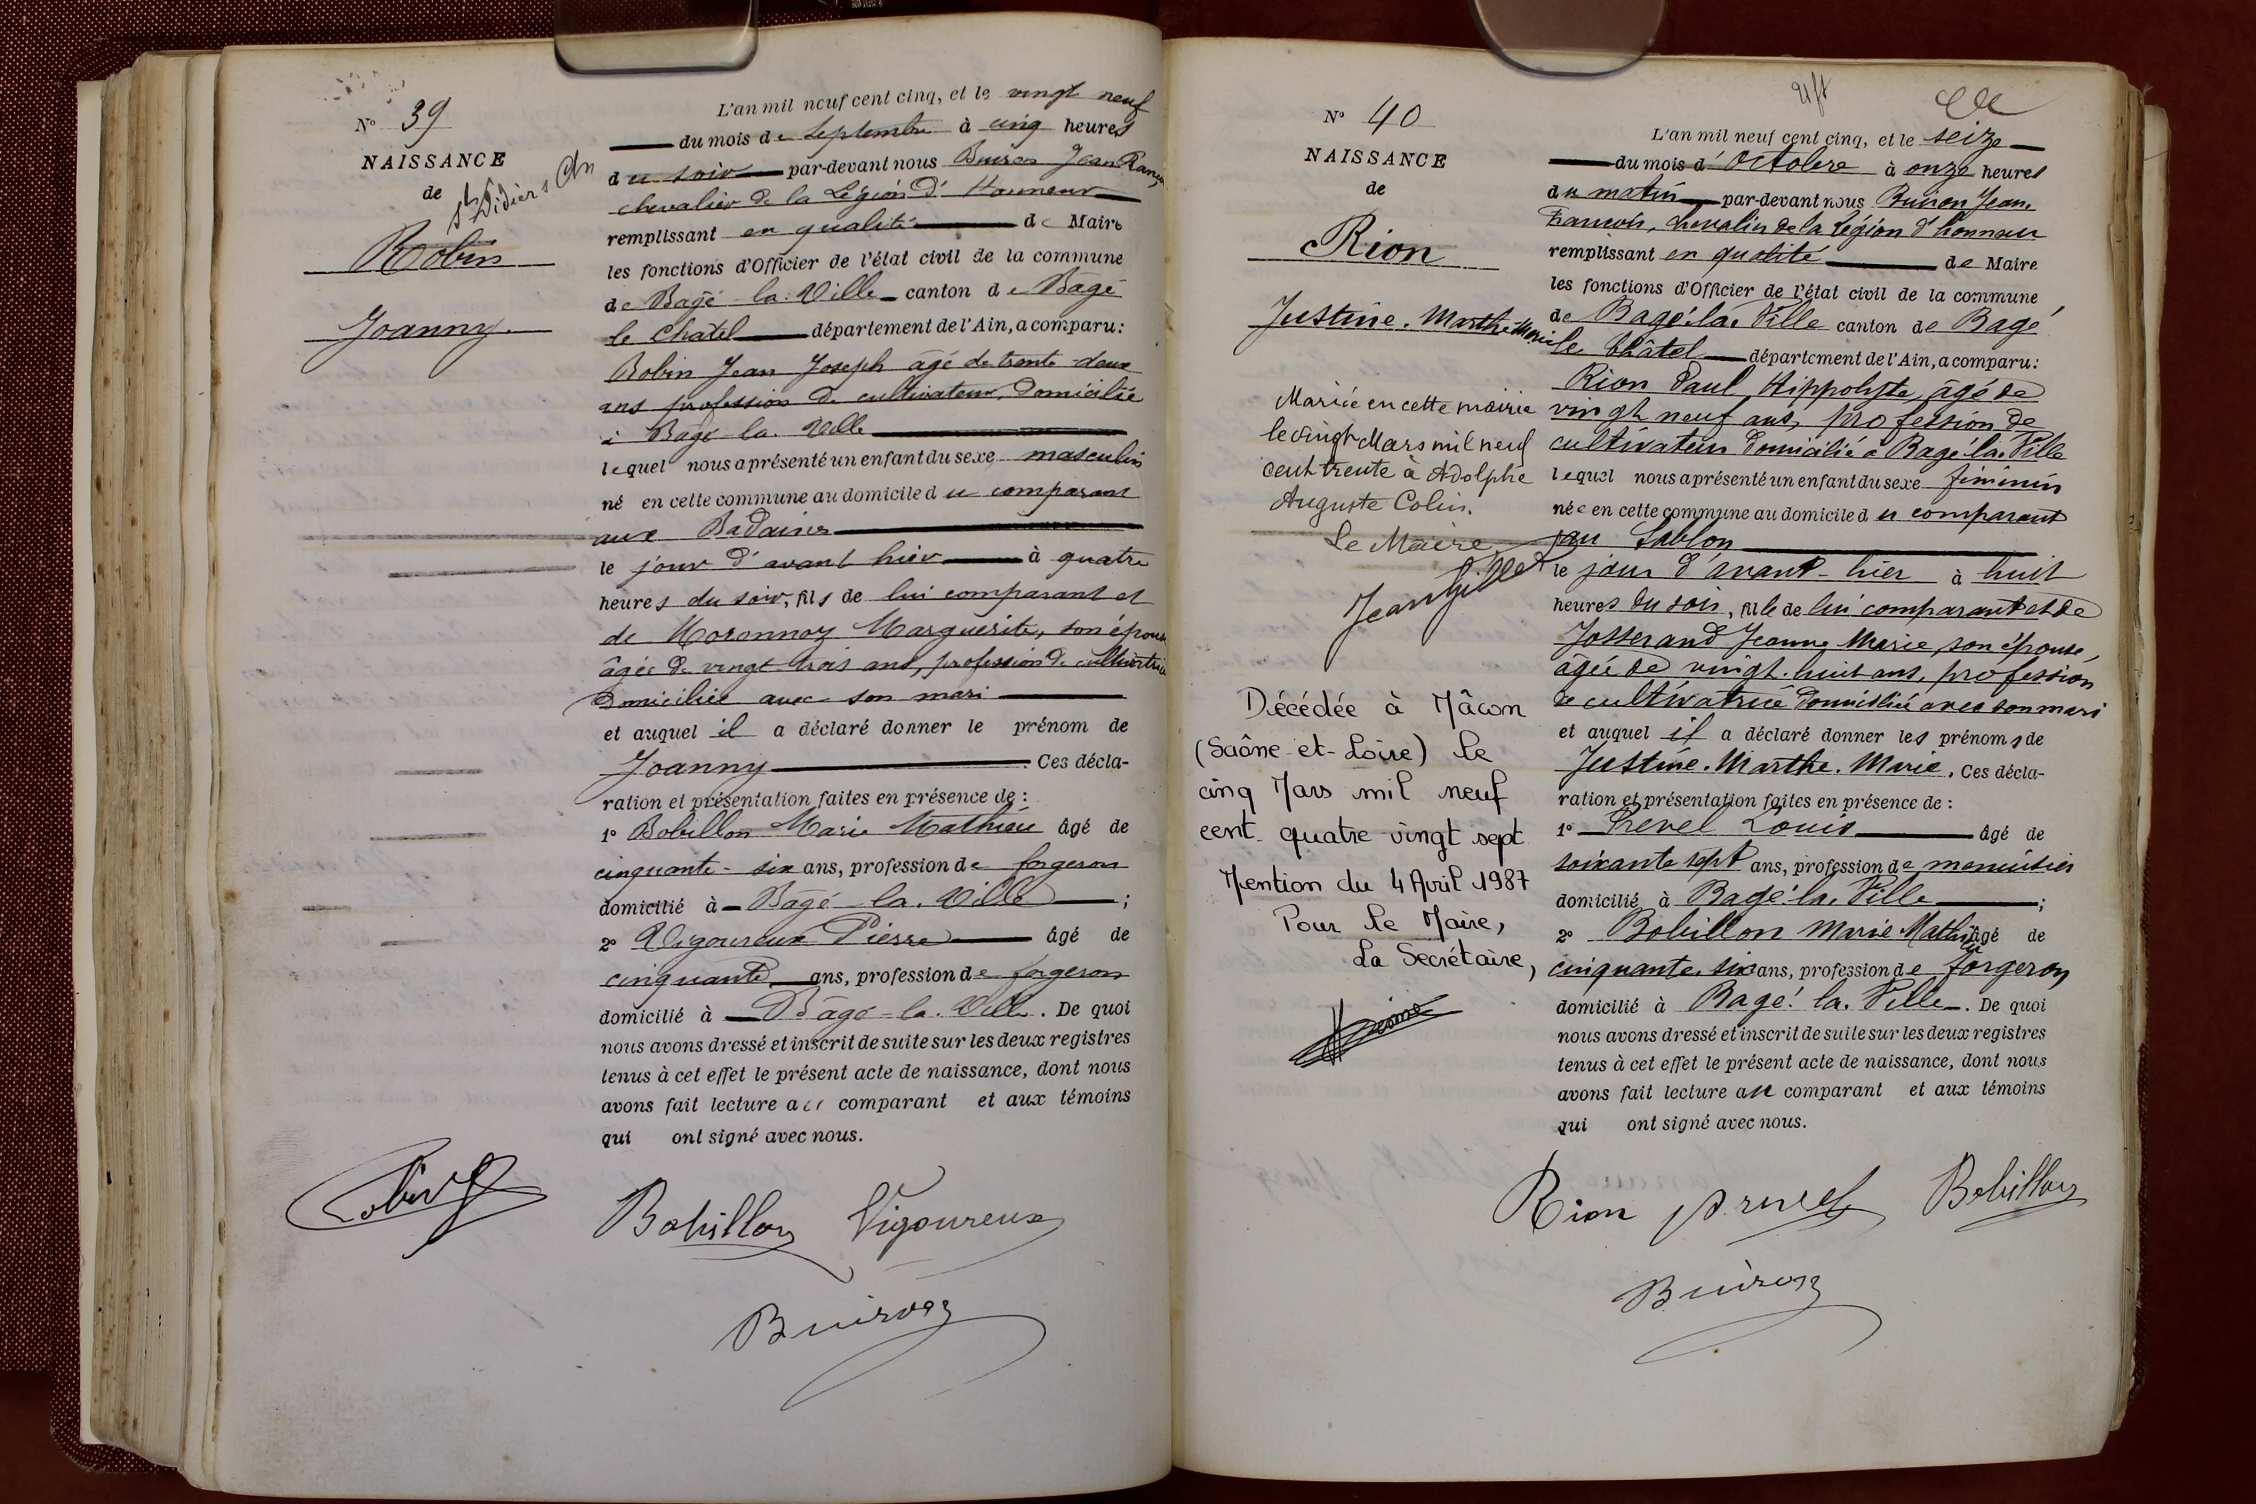 Nº 39
NAISSANCE
de
St Didier s Chn
Robin
Joanny.
L'an mil neuf cent cinq, et le vingt neuf
du mois de Septembre à cinq heures
du soir par-devant nous Buiron Jean
chevalier de la Légion d'Honneur
remplissant en qualité de Maire
les fonctions d'Officier de l'état civil de la commune
de Bagé-la-Ville canton de Bagé
le Chatel département de l'Ain, a comparu:
Robin Jean Joseph âgé de trente-deux
ans profession de cultivateur, domicilié
à Bagé-la-Ville
lequel nous a présenté un enfant du sexe masculin
né en cette commune au domicile du comparant
aux Badaires
le jour d'avant hier à quatre
heures du soir, fils de lui comparant et
de Marguerite, son épouse
âgée de vingt trois ans, profession de cultivatrice
domiciliée avec son mari
et auquel il a déclaré donner le prénom de
Joanny. Ces décla-
ration et présentation faites en présence de:
1º Bobillon Marie Mathieu âgé de
cinquante-six ans, profession de forgeron
domicilié à Bagé-la-Ville;
2º Vigoureux Pierre âgé de
cinquante ans, profession de forgeron
domicilié à Bagé-la-Ville. De quoi
nous avons dressé et inscrit de suite sur les deux registres
tenus à cet effet le présent acte de naissance, dont nous
avons fait lecture au comparant et aux témoins
qui ont signé avec nous.
Robin
Bobillon Vigoureux
Buiron
Nº 40
NAISSANCE
de
Rion
Justine. Marthe. Marie
Mariée en cette mairie
le vingt Mars mil neuf
cent trente à Adolphe
Auguste Colin.
Le Maire
Jean Gillet
Décédée à Mâcon
(Saône-et-Loire) le
cinq Mars mil neuf
cent quatre-vingt sept
Mention du 4 Avril 1987
Pour le Maire,
La Secrétaire,
L'an mil neuf cent cinq, et le seize
du mois d'Octobre à onze heures
du matin par-devant nous Buiron Jean.
François, chevalier de la Légion d'honneur
remplissant en qualité de Maire
les fonctions d'Officier de l'état civil de la commune
de Bagé-la-Ville canton de Bagé
le Châtel département de l'Ain, a comparu:
Rion Paul Hippolyte, âgé de
vingt neuf ans, profession de
cultivateur domicilié à Bagé-la-Ville
lequel nous a présenté un enfant du sexe féminin
née en cette commune au domicile du comparant
au Sablon
le jour d'avant-hier à huit
heures du soir, fille de lui comparant et de
Josserand Jeanne Marie son épouse,
âgée de vingt-huit ans, profession
de cultivatrice domiciliée avec son mari
et auquel il a déclaré donner les prénoms de
Justine. Marthe. Marie. Ces décla-
ration et présentation faites en présence de:
1º Louis âgé de
soixante sept ans, profession de menuisier
domicilié à Bagé-la-Ville;
2º Bobillon Marie Mathieu âgé de
cinquante six ans, profession de forgeron
domicilié à Bagé-la-Ville. De quoi
nous avons dressé et inscrit de suite sur les deux registres
tenus à cet effet le présent acte de naissance, dont nous
avons fait lecture au comparant et aux témoins
qui ont signé avec nous.
Rion Bobillon
Buiron